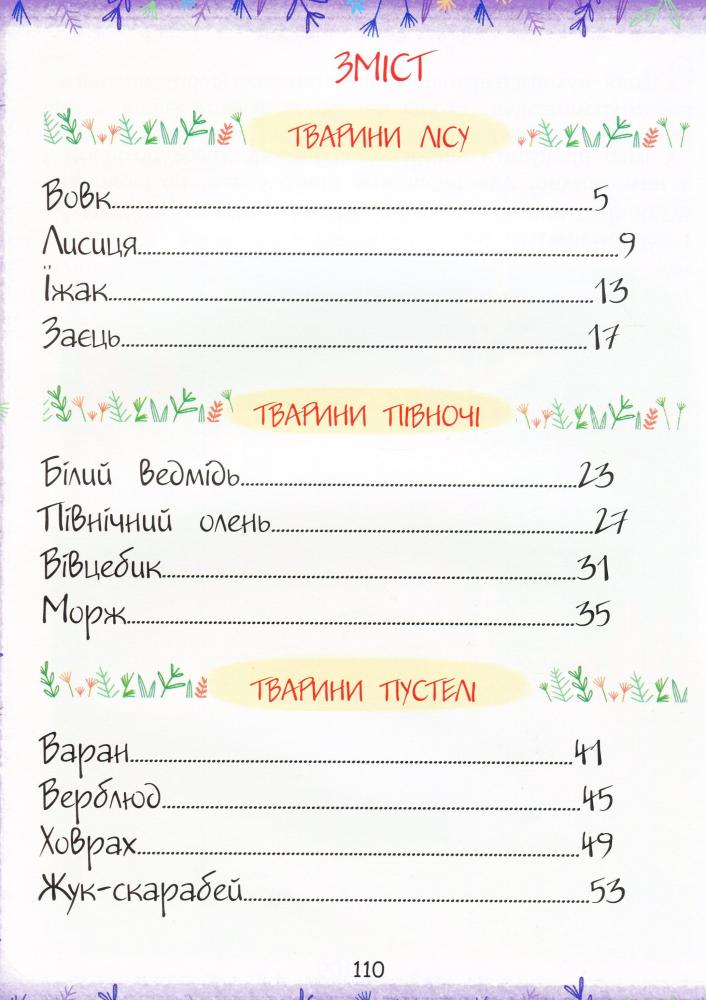 ЗМІСТ
ТВАРИНИ ЛІСУ
Вовк........................................5
Лисиця........................................9
Їжак........................................13
Заєць........................................17
ТВАРИНИ ПІВНОЧІ
Білий ведмідь........................................23
Північний олень........................................27
Вівцебик........................................31
Морж........................................35
ТВАРИНИ ПУСТЕЛІ
Варан........................................41
Верблюд........................................45
Ховрах........................................49
Жук-скарабей........................................53
110